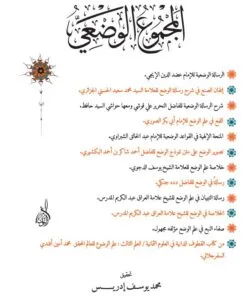 المجموع الوضعي
الرسالة الوضعية للإمام عضد الدين الإيجي.
إتقان الصنع في شرح رسالة الوضع للعلامة السيد محمد سعيد الحسني الجزائري.
شرح الرسالة الوضعية للفاضل التحرير علي قوشي ومعها حواشي السيد حافظ.
اللمع في علم الوضع للإمام أبي بكر الصوري.
المنحة الإلهية في القواعد الوضعية للإمام عبد الخالق الشبراوي.
تصوير الوضع على متن نموذج الوضع للفاضل أحمد شاكر بن أحمد البكشهري.
خلاصة علم الوضع للعلامة الشيخ يوسف الدجوي.
رسالة في الوضع للفاضل
رسالة التبيان في علم الوضع للشيخ علامة العراق عبد الكريم المدرس.
الخلاصة في الوضع للشيخ علامة العراق عبد الكريم المدرس.
صفاء النبع في علم الوضع مؤلفه مجهول.
من كتاب القطوف الدانية في العلوم الثمانية / العلم الثالث: علم الوضع للعالم المحقق محمد أمين أفندي
السفرجلاني.
تحقيق
محمد يوسف إدريس